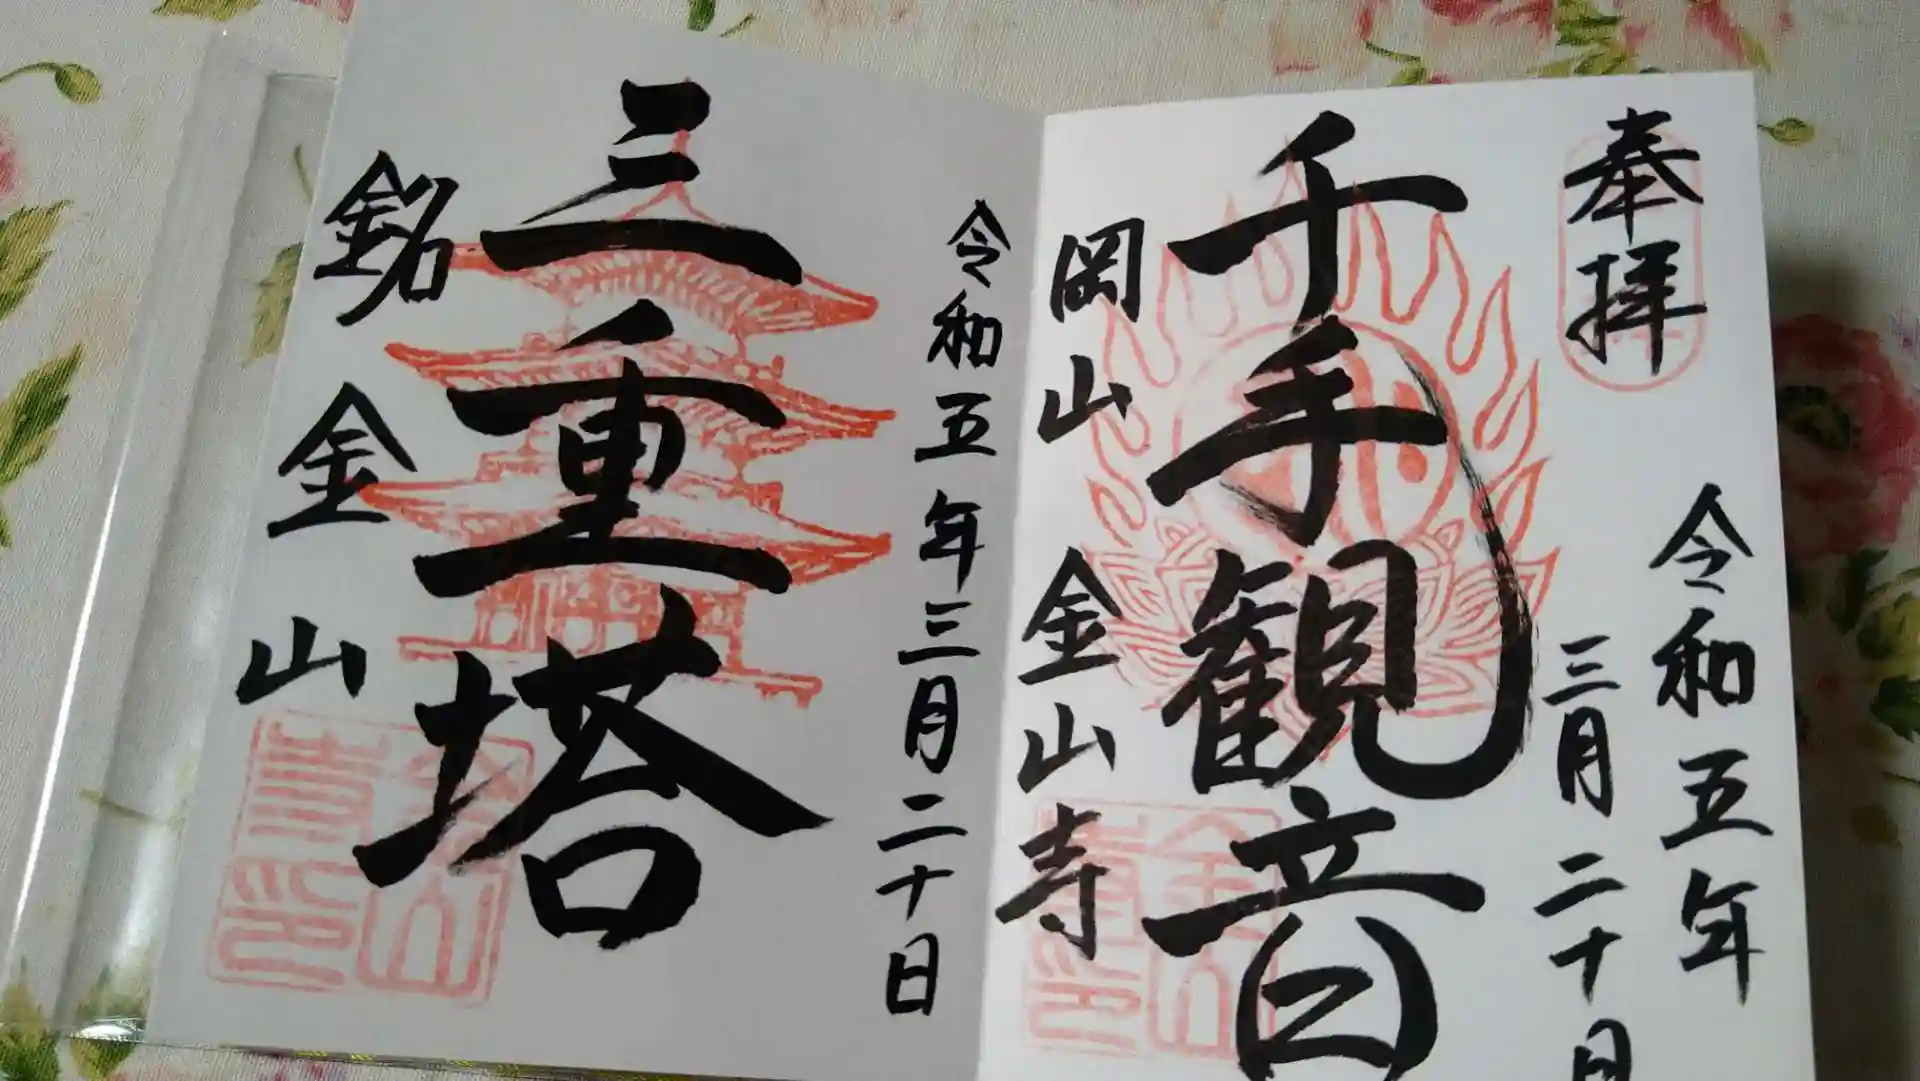 奉拝
令和五年
三月二十日
千手観音
岡山金山寺
令和五年三月二十日
三重塔
銘金山